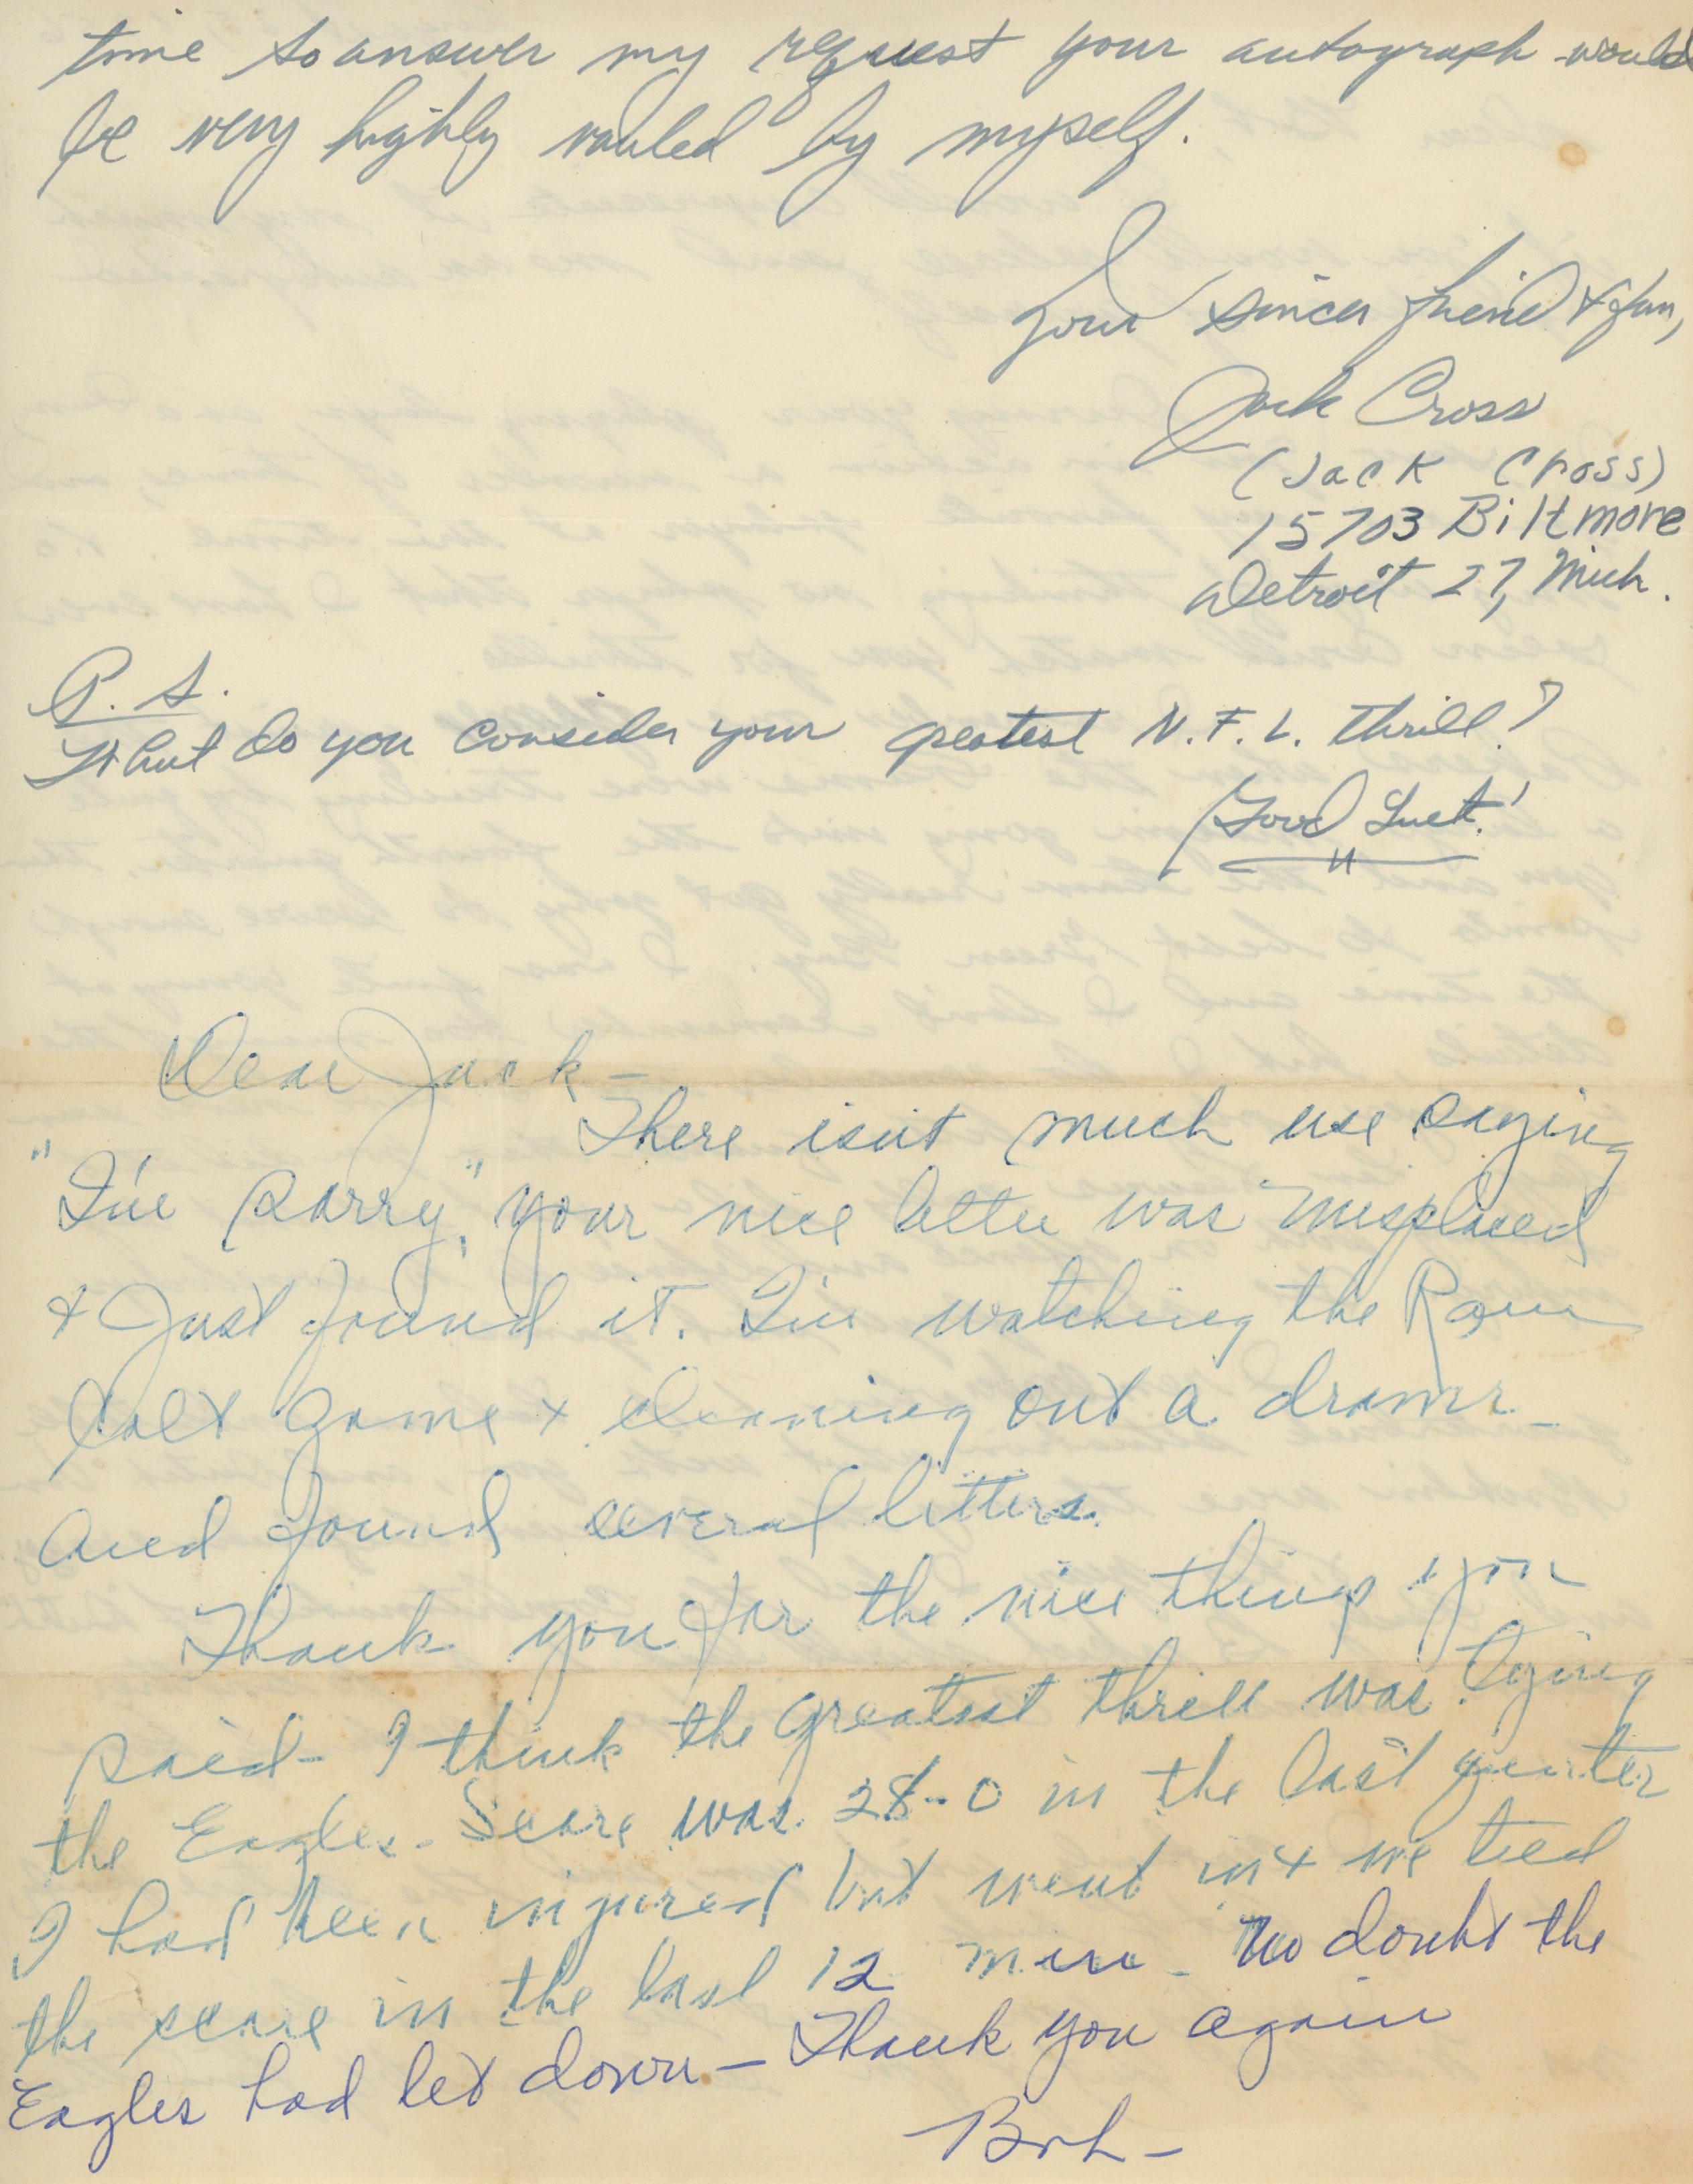 time to answer my request your autograph would
be very highly vauled by myself.
Your sincer freind & fan,
Jack Cross
(Jack Cross)
15703 Biltmore
Detroit 27, Mich.
P.S.
What do you consider your greatest N.F.L. thrill?
Good Luck!
Dear Jack -
There isn't much use saying
"I'm sorry," your nice letter was misplaced
& Just found it. I'm watching the Ram
Colt game & cleaning out a drawer -
and found several letters.
Thank you for the nice things you
said - I think the greatest thrill was tying
the Eagles - Score was 28-0 in the last quarter
I had been injured but went in & we tied
the score in the last 12 min - no doubt the
Eagles had let down - Thank you again
Bob -